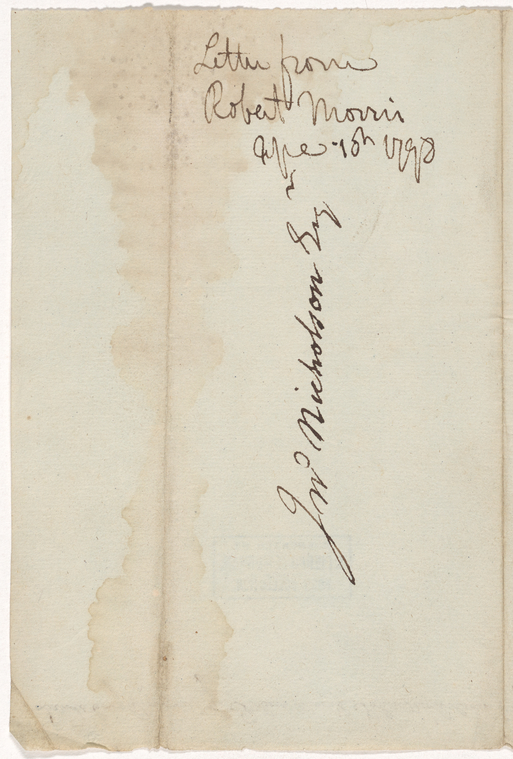 Letter from
Robert Morris
Apl 15th 1798
Jno Nicholson Esqr